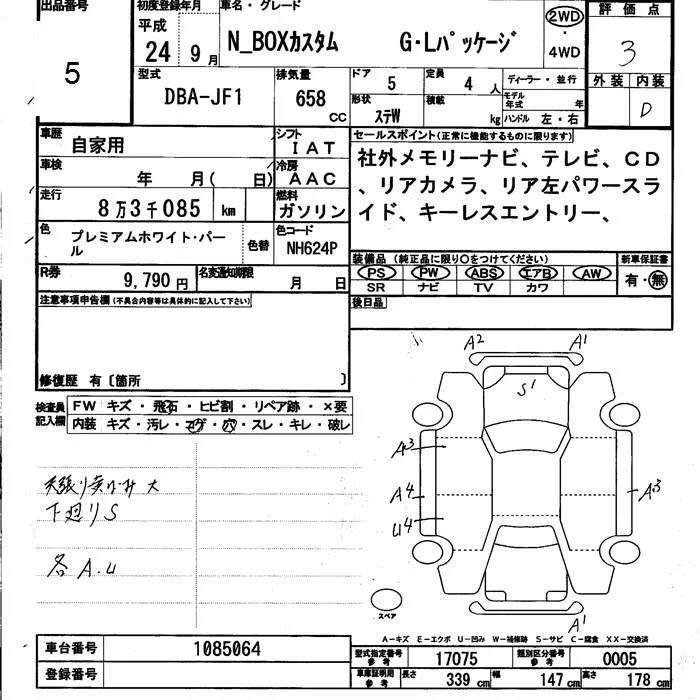 出品番号
5
初度登録年月
平成
24 9月
車名・グレード
N_BOXカスタム G・Lパッケージ
2WD
・
4WD
評価点
3
外装 内装
D
型式
DBA-JF1
排気量
658
CC
ドア
5
定員
4 人
ディーラー・並行
モデル
年式 年
形状
ステW
積載
kg
ハンドル 左・右
車歴
自家用
シフト
IAT
車検
年 月( 日)
冷房
AAC
走行
8万3千085 km
燃料
ガソリン
色
プレミアムホワイト・パー
ル
色替
色コード
NH624P
R券
9,790円
名変通知期限
月 日
セールスポイント(正常に機能するものに限ります)
社外メモリーナビ、テレビ、CD
、リアカメラ、リア左パワースラ
イド、キーレスエントリー、
装備品(純正品に限り〇をつけてください)
PS PW ABS エアB AW
SR ナビ TV カワ
新車保証書
有・無
後日品
注意事項申告欄(不具合内容等は具体的に記入して下さい)
修復歴 有〔箇所 〕
検査員
記入欄
FW キズ・飛石・ヒビ割・リペア跡・×要
内装 キズ・汚レ・コゲ・穴・スレ・キレ・破レ
大
下廻りS
各A.U
A2 A1
S1
A3
A4
U4
A3
A1
スペア
A-キズ E-エクボ U-凹み W-補修跡 S-サビ C-腐食 XX-交換済
車台番号
1085064
登録番号
型式指定番号
参考
17075
類別区分番号
参考
0005
車庫証明用
参考
長さ
339 cm
幅
147 cm
高さ
178 cm